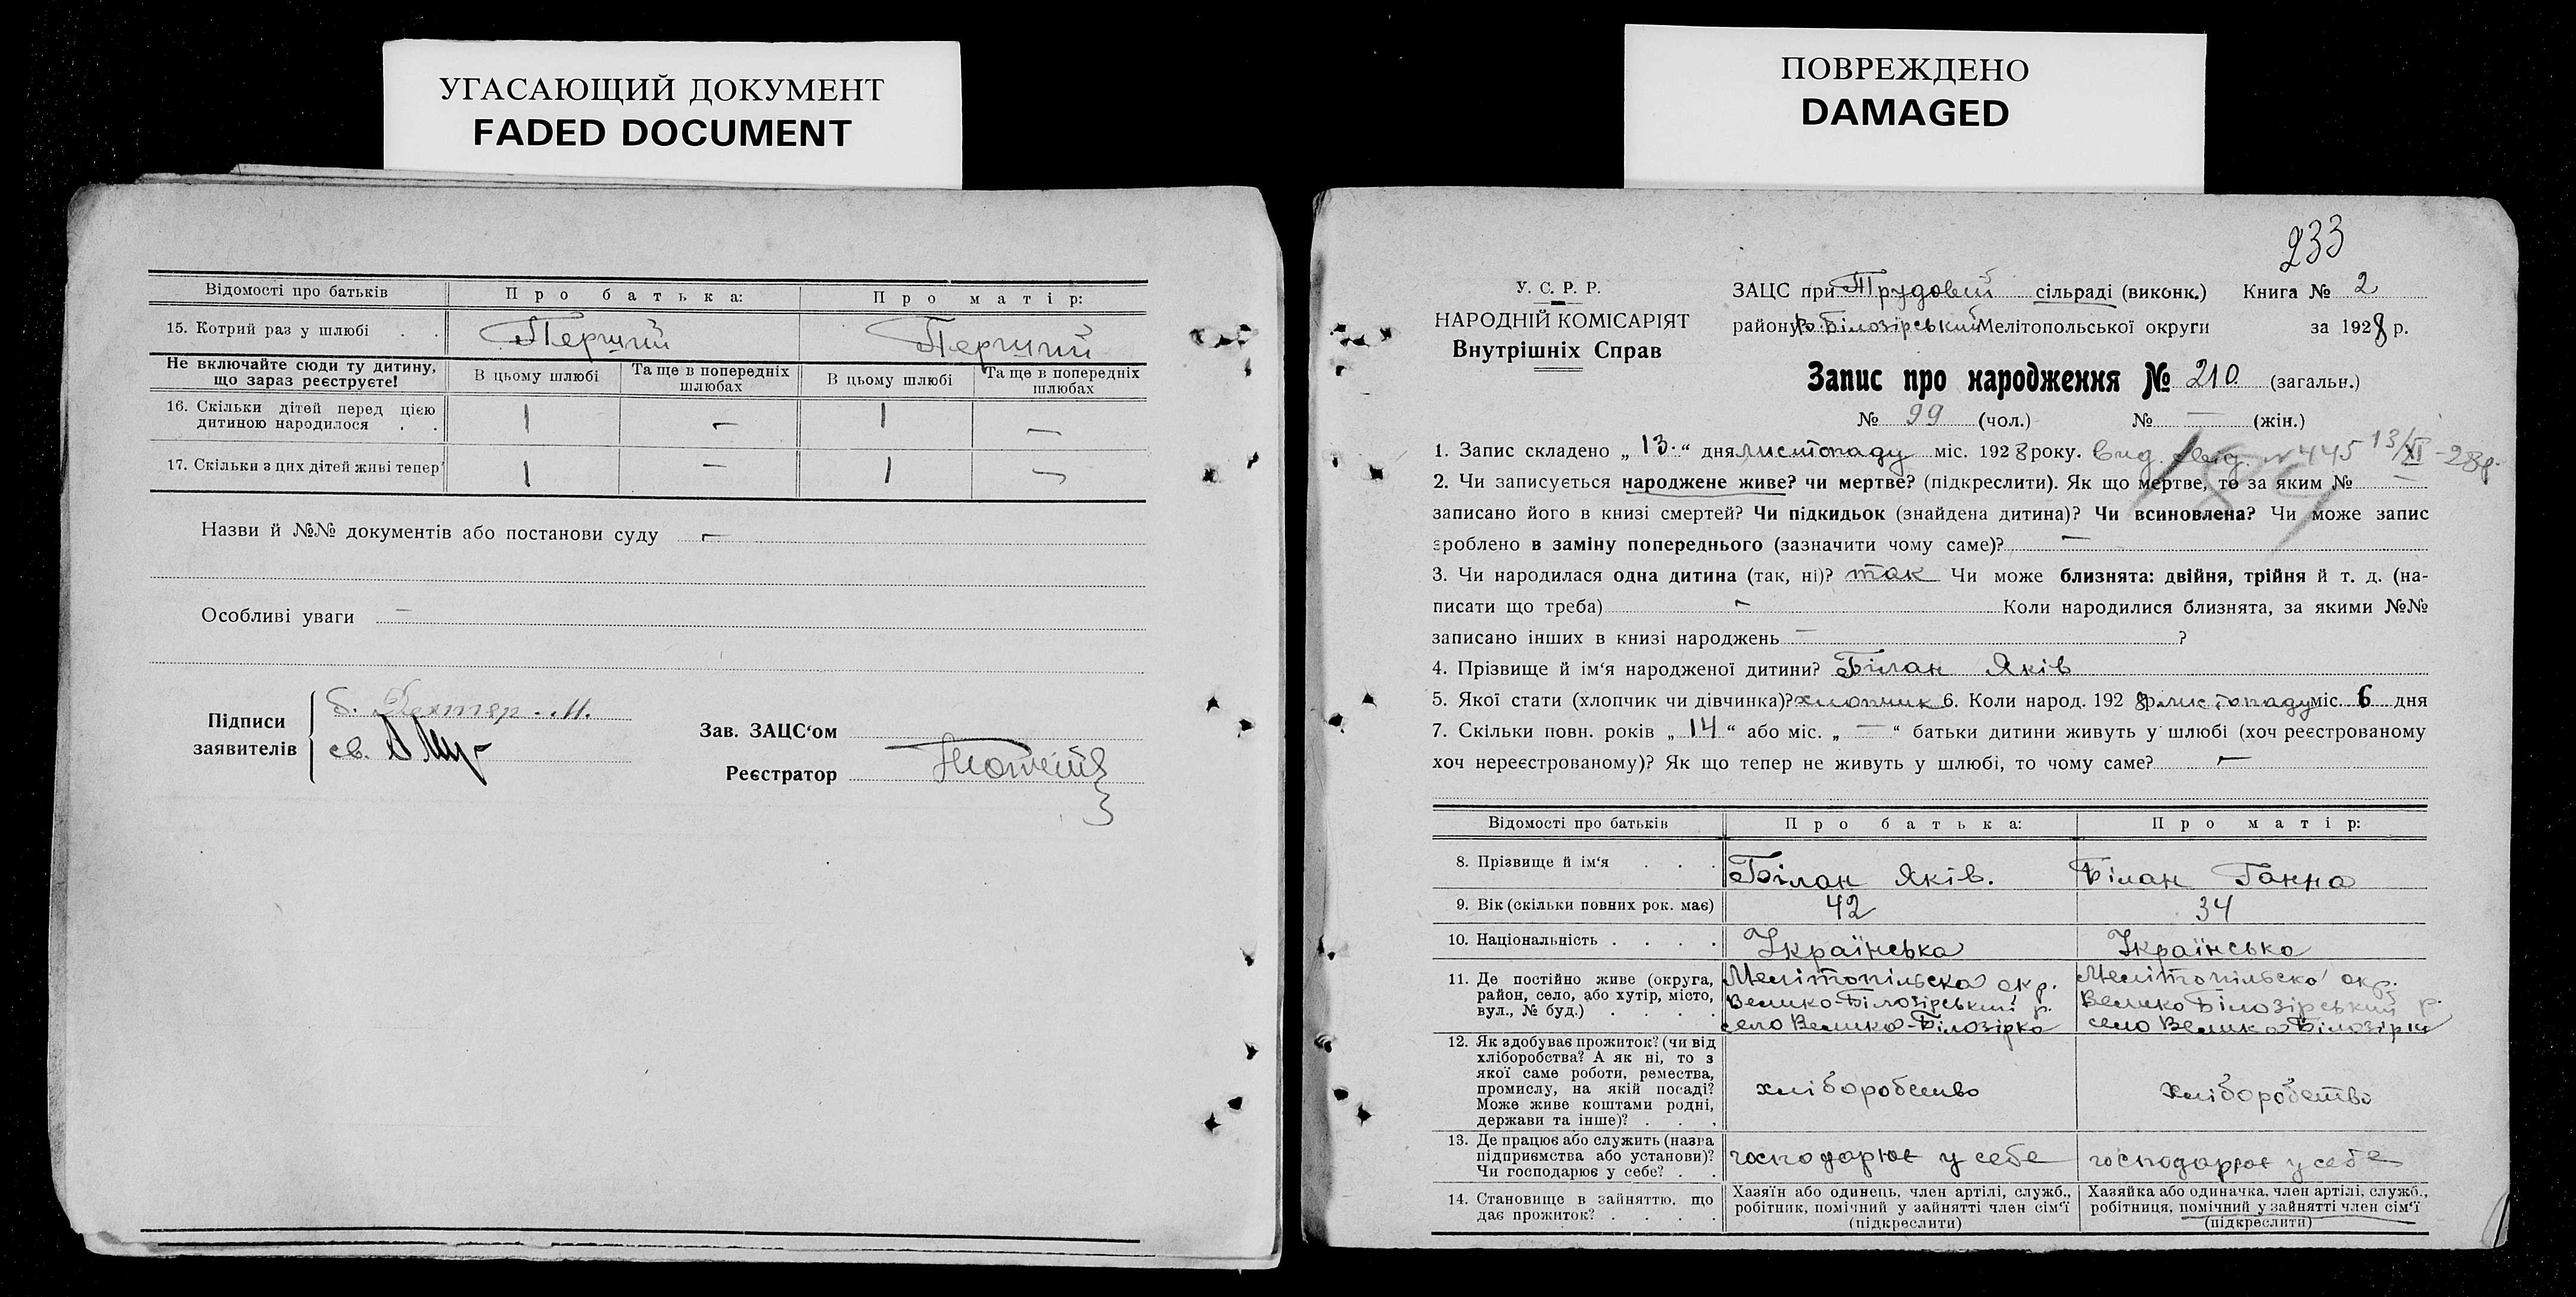 УГАСАЮЩИЙ ДОКУМЕНТ
FADED DOCUMENT
Відомості про батьків Про батька: Про матір:
15. Котрий раз у шлюбі . . Перший Перший
Не включайте сюди ту дитину, що зараз реєструєте! В цьому шлюбі Та ще в попередніх шлюбах В цьому шлюбі Та ще в попередніх шлюбах
16. Скільки дітей перед цією
дитиною народилося . . 1 — 1 —
17. Скільки з цих дітей живі тепер 1 — 1 —
Назви й №№ документів або постанови суду —
Особливі уваги —
Підписи
заявителів
б.
св.
Зав. ЗАЦС'ом
Реєстратор
ПОВРЕЖДЕНО
DAMAGED
233
У. С. Р. Р.
НАРОДНІЙ КОМІСАРІЯТ
Внутрішніх Справ
ЗАЦС при Трудовій сільраді (виконк.) Книга № 2
району В-Білозірський Мелітопольської округи за 1928 р.
Запис про народження № 210 (загальн.)
№ 99 (чол.) № — (жін.)
1. Запис складено „13.“ дня листопаду міс. 1928 року. Вид. №445 13/XI-28р.
2. Чи записується народжене живе? чи мертве? (підкреслити). Як що мертве, то за яким № —
записано його в книзі смертей? Чи підкидьок (знайдена дитина)? Чи всиновлена? Чи може запис
зроблено в заміну попереднього (зазначити чому саме)? —
3. Чи народилася одна дитина (так, ні)? так Чи може близнята: двійня, трійня й т. д. (на-
писати що треба) — Коли народилися близнята, за якими №№
записано інших в книзі народжень — ?
4. Прізвище й ім'я народженої дитини? Білан Яків
5. Якої стати (хлопчик чи дівчинка)? хлопчик 6. Коли народ. 1928 р. листопаду міс. 6 дня
7. Скільки повн. років „14“ або міс. „—“ батьки дитини живуть у шлюбі (хоч реєстрованому
хоч нереєстрованому)? Як що тепер не живуть у шлюбі, то чому саме? —
Відомості про батьків Про батька: Про матір:
8. Прізвище й ім'я . . . Білан Яків. Білан Ганна
9. Вік (скільки повних рок. має) 42 34
10. Національність . . . . Українська Українська
11. Де постійно живе (округа,
район, село, або хутір, місто,
вул., № буд.) . . . .
Мелітопільска окр.
Велико-Білозірський р.
село Велико-Білозірка
Мелітопільска окр.
Велико Білозірський р.
село Велико Білозірка
12. Як здобуває прожиток? (чи від
хліборобства? А як ні, то з
якої саме роботи, ремества,
промислу, на якій посаді?
Може живе коштами родні,
держави та інше)? . . .
хліборобство хліборобство
13. Де працює або служить (назва
підприємства або установи)?
Чи господарює у себе? . .
господарює у себе господарює у себе
14. Становище в зайняттю, що
дає прожиток? . . . .
Хазяїн або одинець, член артілі, служб.,
робітник, помічний у зайнятті член сім'ї
(підкреслити)
Хазяйка або одиначка, член артілі, служб.,
робітниця, помічний у зайнятті член сім'ї
(підкреслити)